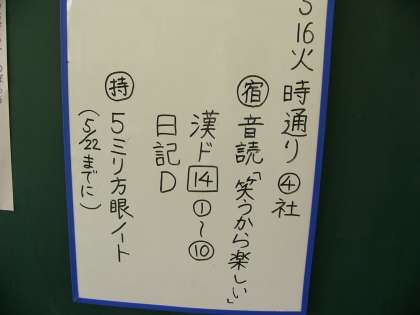 5/16火 時通り ④社
㊟宿 音読「笑うから楽しい」
漢ド14 ①〜⑩
日記D
持 5ミリ方眼ノート
(5/22までに)